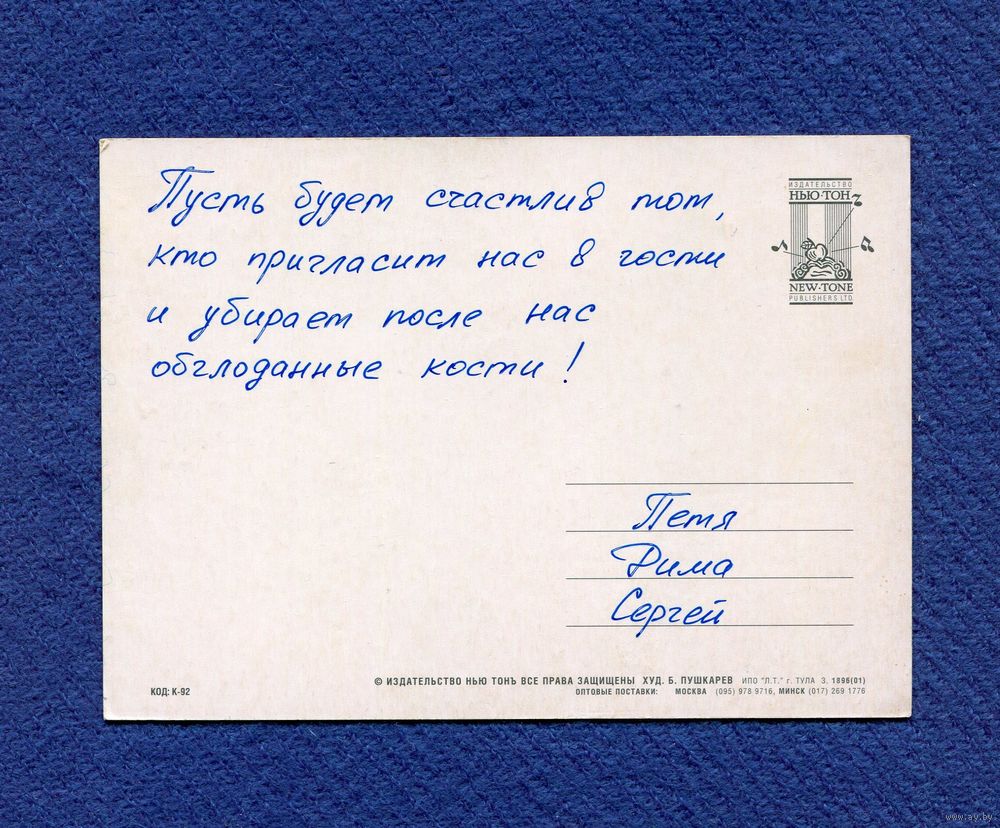 Пусть будет счастлив тот,
кто пригласит нас в гости
и убирает после нас
обглоданные кости!
ИЗДАТЕЛЬСТВО
НЬЮ·ТОН
NEW·TONE
PUBLISHERS LTD
Петя
Рима
Сергей
КОД: К-92
© ИЗДАТЕЛЬСТВО НЬЮ ТОНЪ ВСЕ ПРАВА ЗАЩИЩЕНЫ ХУД. Б. ПУШКАРЕВ ИПО "Л.Т." г. ТУЛА З. 1896(01)
ОПТОВЫЕ ПОСТАВКИ: МОСКВА (095) 978 9716, МИНСК (017) 269 1776
www.ay.by